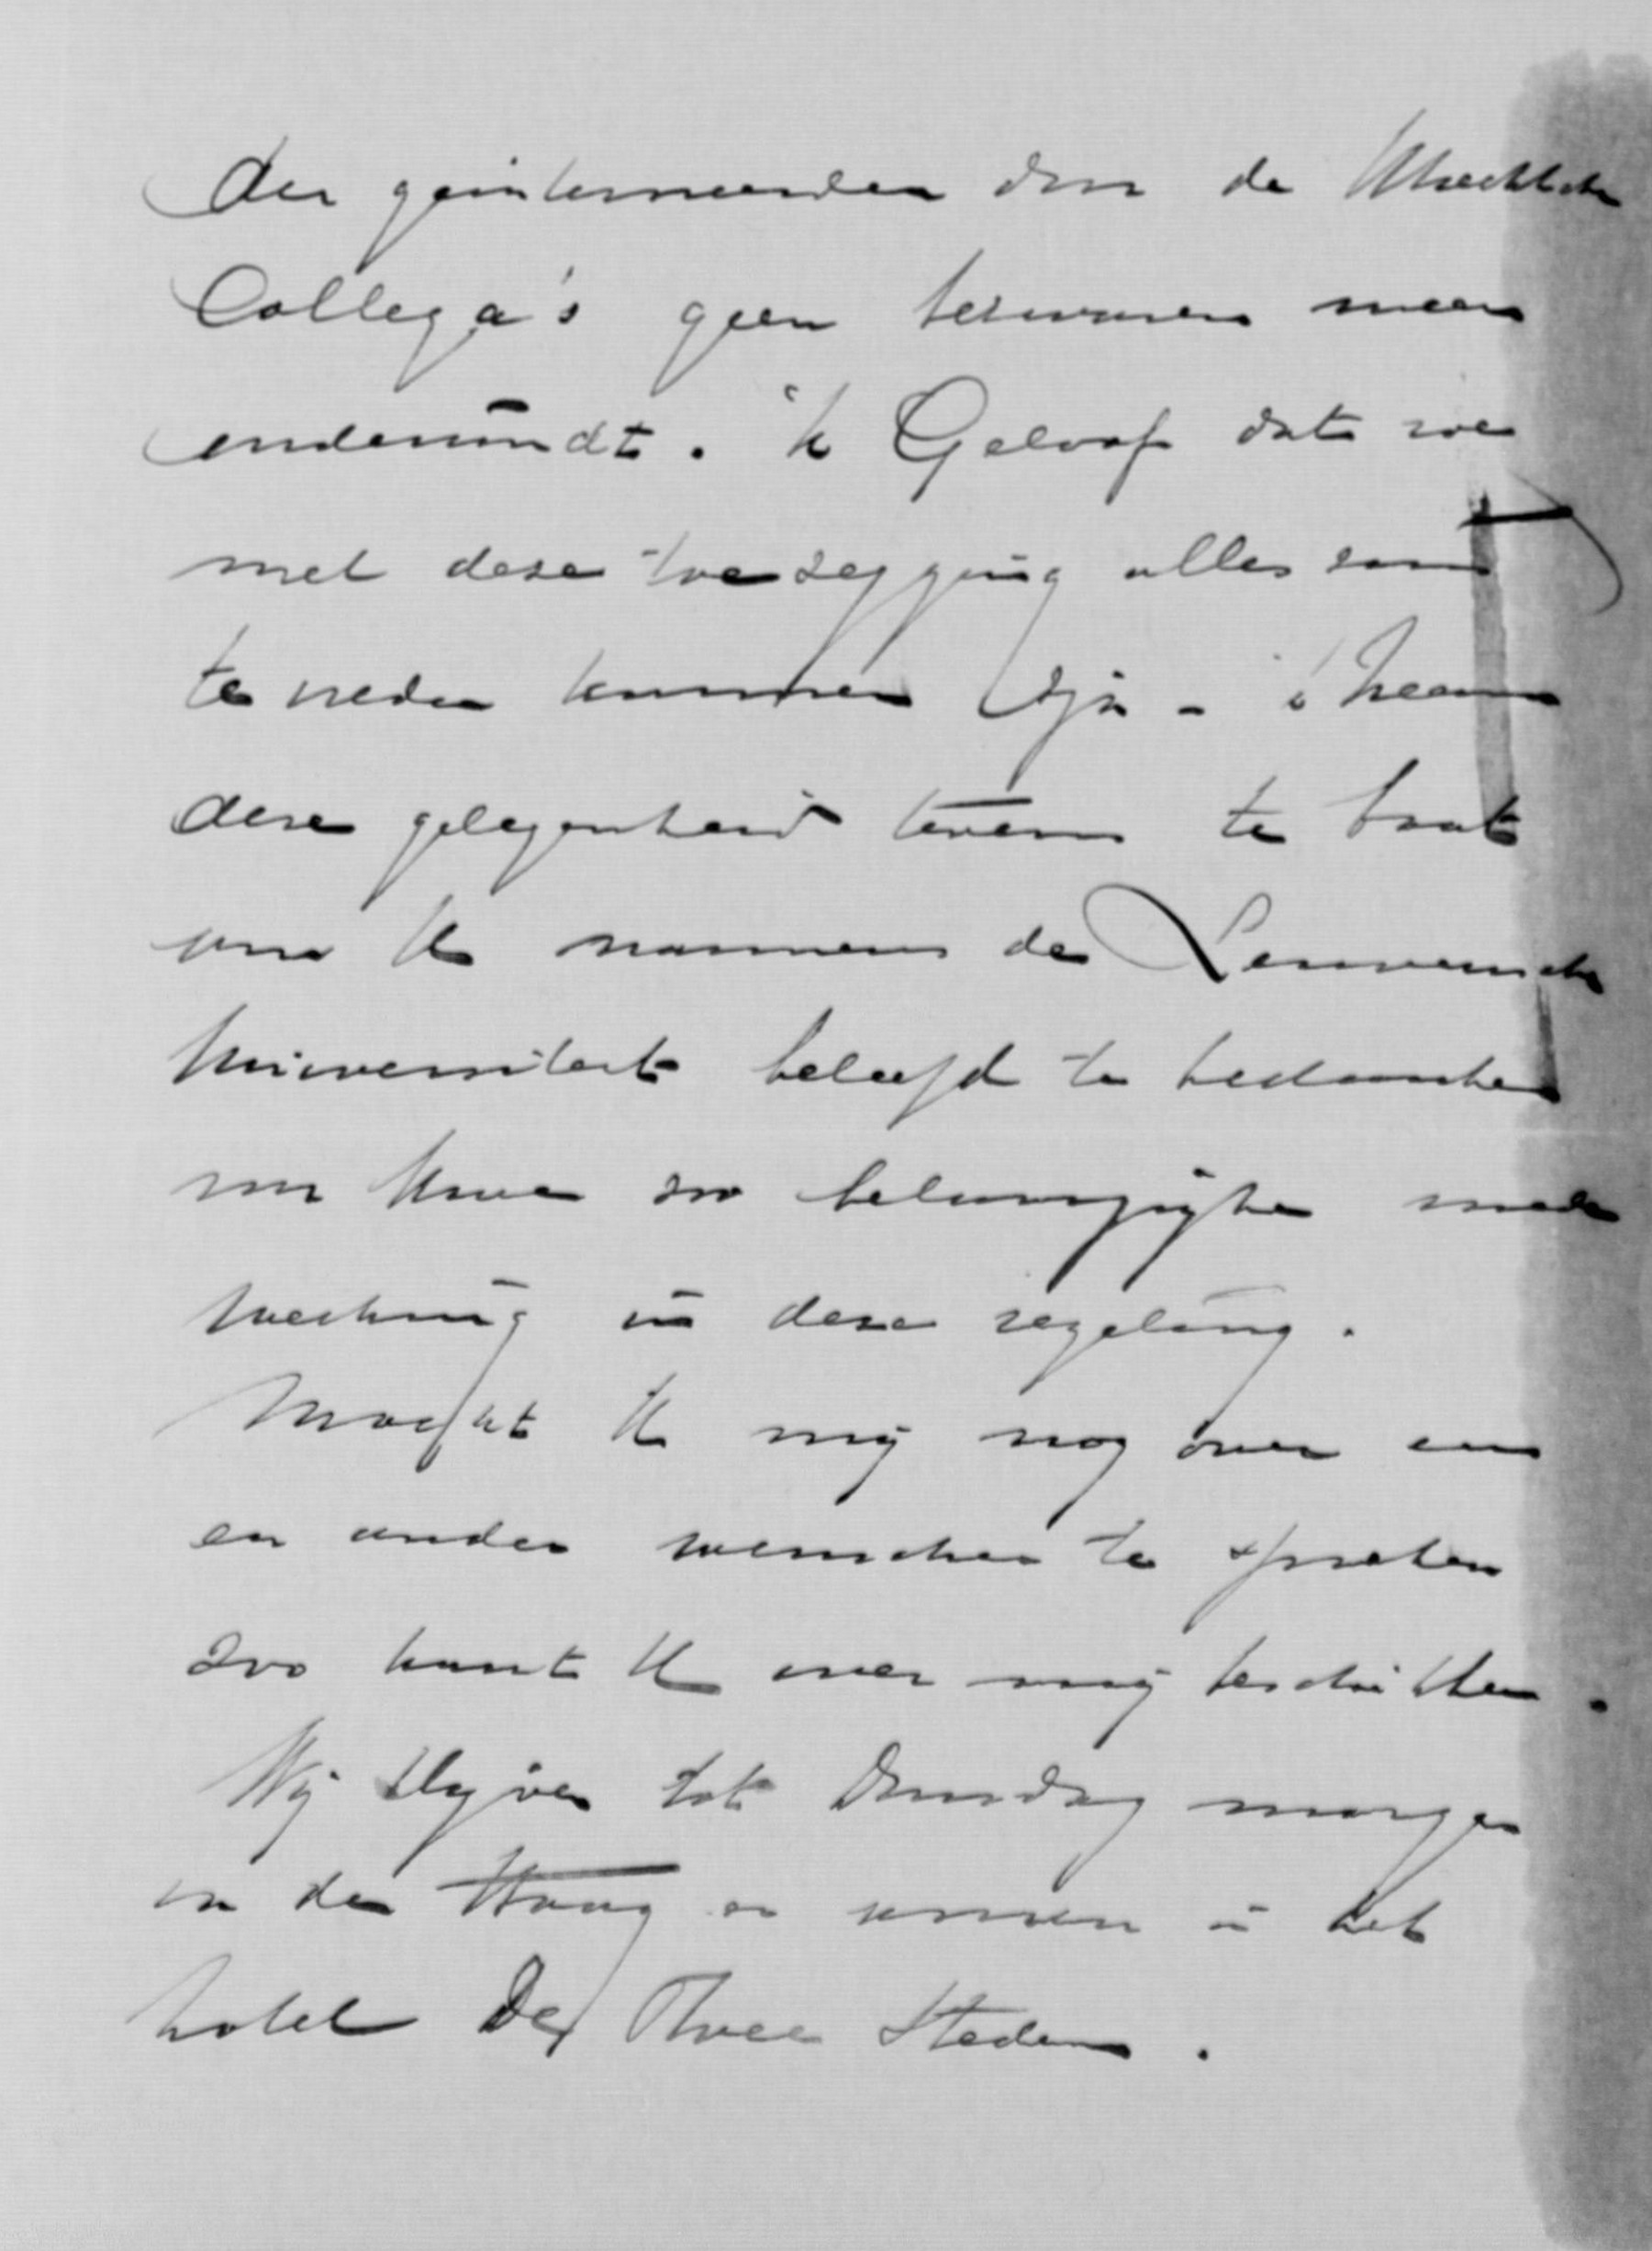 der geïnterneerden door de Utrechtsche
Collega's geen bezwaren meer
ondervindt. 'k Geloof dat we
met deze toezegging alles zou
te vreden kunnen zijn - 'k neem
deze gelegenheid tevens te baat
om U namens de Leuvensche
Universiteit beleefd te bedanken
om Uwe zoo belangrijke mede
werking in deze regeling.
Mocht U mij nog over een
en ander wenschen te spreken
zoo kunt U over mij beschikken.
Wij blijven tot Dinsdag morgen
in den Haag en wonen in het
hotel De Twee Steden.